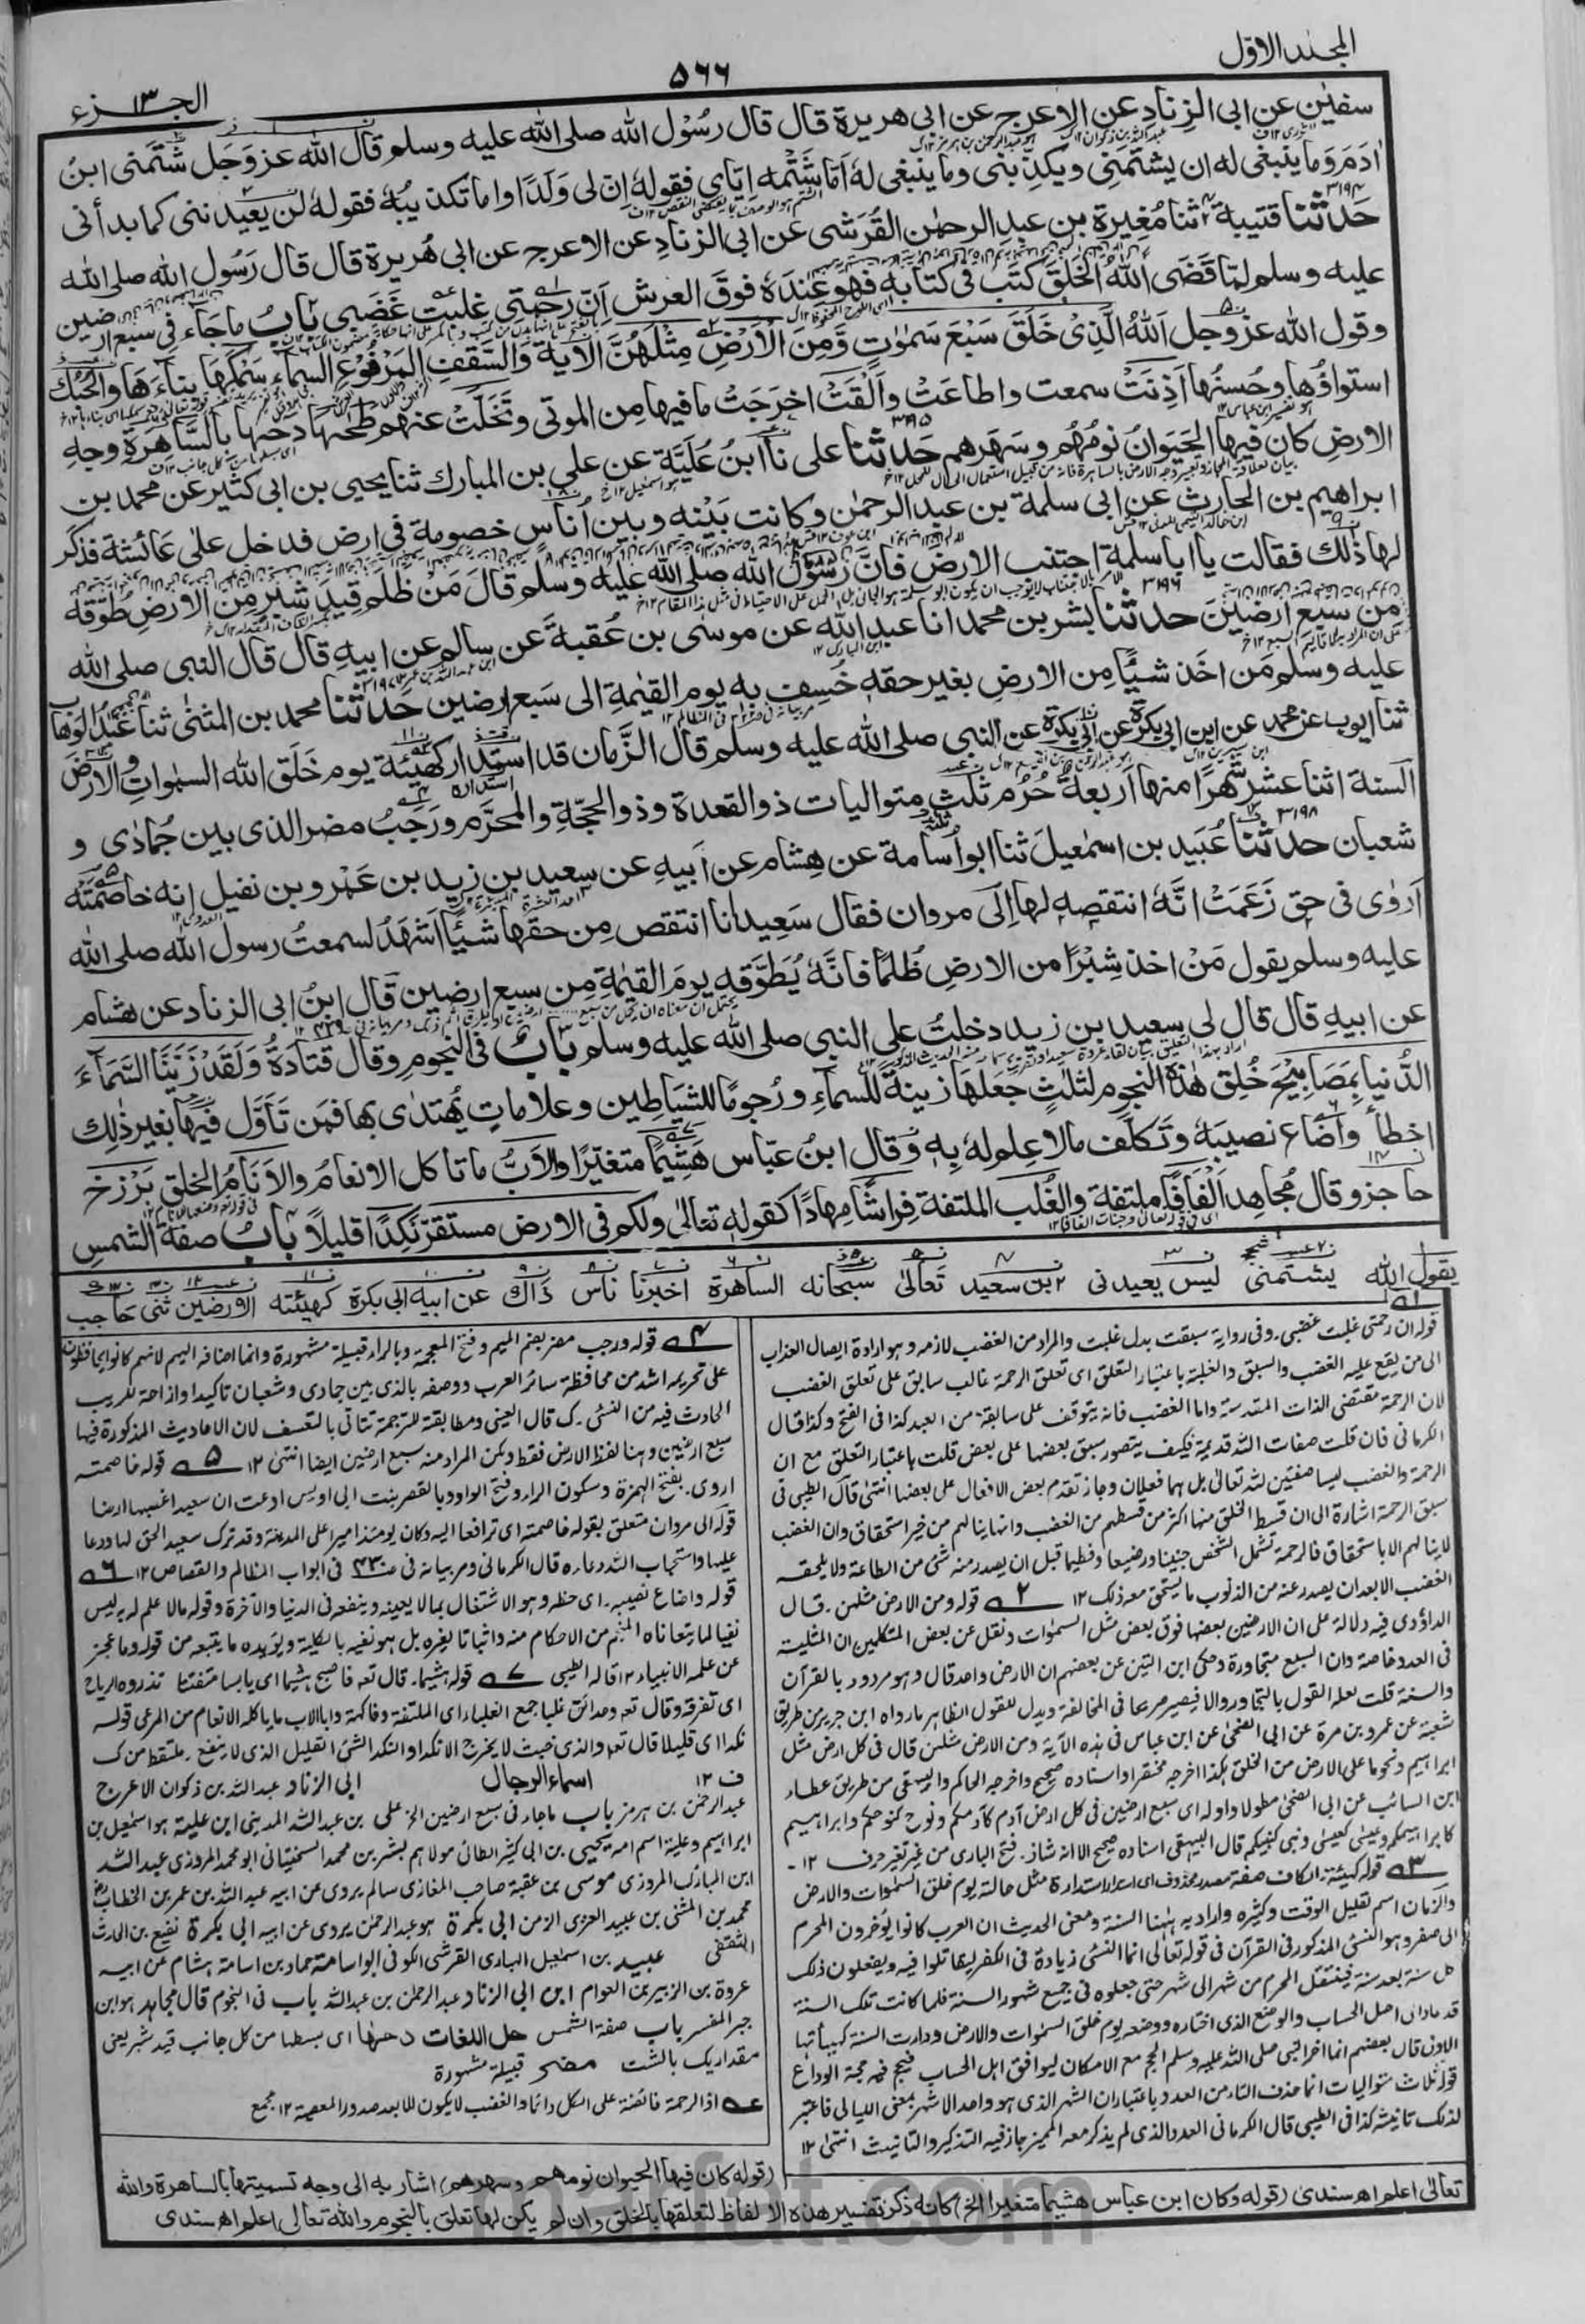 المجلد الاول
٥٦٦
الجزء ١٣
سفين عن ابى الزناد عن الاعرج عن ابى هريرة قال قال رسول الله صلى الله عليه وسلم قال الله عز وجل شتمنى ابن
ادم وما ينبغى له ان يشتمنى ويكذبنى وما ينبغى له اما شتمه اياى فقوله ان لى ولدا واما تكذيبه فقوله لن يعيدنى كما بدأنى
٣١٩٤ حدثنا قتيبة ثنا مغيرة بن عبد الرحمن القرشى عن ابى الزناد عن الاعرج عن ابى هريرة قال قال رسول الله صلى الله
عليه وسلم لما قضى الله الخلق كتب فى كتابه فهو عنده فوق العرش ان رحمتى غلبت غضبى باب ما جاء فى سبع ارضين
وقول الله عز وجل الله الذى خلق سبع سموت ومن الارض مثلهن الاية والسقف المرفوع السماء سمكها بناءها والحبك
استواؤها وحسنها اذنت سمعت واطاعت والقت اخرجت ما فيها من الموتى وتخلت عنهم طحها دحها بالساهرة وجه
الارض كان فيها الحيوان نومهم وسهرهم ٣١٩٥ حدثنا على نا ابن علية عن على بن المبارك ثنا يحيى بن ابى كثير عن محمد بن
ابراهيم بن الحارث عن ابى سلمة بن عبد الرحمن وكانت بينه وبين اناس خصومة فى ارض فدخل على عائشة فذكر
لها ذلك فقالت يا ابا سلمة اجتنب الارض فان رسول الله صلى الله عليه وسلم قال من ظلم قيد شبر من الارض طوقه
من سبع ارضين ٣١٩٦ حدثنا بشر بن محمد انا عبد الله عن موسى بن عقبة عن سالم عن ابيه قال قال النبى صلى الله
عليه وسلم من اخذ شيئا من الارض بغير حقه خسف به يوم القيمة الى سبع ارضين ٣١٩٧ حدثنا محمد بن المثنى ثنا عبد الوهاب
ثنا ايوب عن محمد عن ابن ابى بكرة عن ابى بكرة عن النبى صلى الله عليه وسلم قال الزمان قد استدار كهيئة يوم خلق الله السموات والارض
السنة اثنا عشر شهرا منها اربعة حرم ثلث متواليات ذو القعدة وذو الحجة والمحرم ورجب مضر الذى بين جمادى و
شعبان ٣١٩٨ حدثنا عبيد بن اسمعيل ثنا ابو اسامة عن هشام عن ابيه عن سعيد بن زيد بن عمرو بن نفيل انه خاصمته
اروى فى حق زعمت انه انتقصه لها الى مروان فقال سعيد انا انتقص من حقها شيئا اشهد لسمعت رسول الله صلى الله
عليه وسلم يقول من اخذ شبرا من الارض ظلما فانه يطوقه يوم القيمة من سبع ارضين قال ابن ابى الزناد عن هشام
عن ابيه قال قال لى سعيد بن زيد دخلت على النبى صلى الله عليه وسلم باب فى النجوم وقال قتادة ولقد زينا السماء
الدنيا بمصابيح خلق هذه النجوم لثلث جعلها زينة للسماء ورجوما للشياطين وعلامات يهتدى بها فمن تأول فيها بغير ذلك
اخطأ واضاع نصيبه وتكلف ما لا علم له به وقال ابن عباس هشيما متغيرا والاب ما تاكل الانعام والانام الخلق برزخ
حاجز وقال مجاهد الفافا ملتفة والغلب الملتفة فراشا مهادا كقوله تعالى ولكم فى الارض مستقر نكدا قليلا باب صفة الشمس
يقول الله يشتمنى ليس يعيدنى بن سعيد تعالى سبحانه الساهرة اخبرنا ناس ذاك عن ابيه ابى بكرة كهيئته الارضين ثنى حاجب
قوله ان رحمتى غلبت غضبى. وفى رواية سبقت بدل غلبت والمراد من الغضب لازمه وهو ارادة ايصال العذاب
الى من يقع عليه الغضب والسبق والغلبة باعتبار التعلق اى تعلق الرحمة غالب سابق على تعلق الغضب
لان الرحمة مقتضى الذات المقدسة واما الغضب فانه يتوقف على سابقة من العبد كذا فى الفتح وكذا قال
الكرمانى فان قلت صفات الله قديمة فكيف يتصور سبق بعضها على بعض قلت باعتبار التعلق مع ان
الرحمة والغضب ليسا صفتين لله تعالى بل هما فعلان وجاز تقدم بعض الافعال على بعضها انتهى قال الطيبى فى
سبق الرحمة اشارة الى ان قسط الخلق منها اكثر من قسطهم من الغضب وانها ينالهم من غير استحقاق وان الغضب
لا ينالهم الا باستحقاق فالرحمة تشمل الشخص جنينا ورضيعا وفطيما قبل ان يصدر منه شئ من الطاعة ولا يلحقه
الغضب الا بعد ان يصدر عنه من الذنوب ما يستحق معه ذلك ١٢ ٢ قوله ومن الارض مثلهن. قال
الداؤدى فيه دلالة على ان الارضين بعضها فوق بعض مثل السموات ونقل عن بعض المتكلمين ان المثلية
فى العدد خاصة وان السبع متجاورة وحكى ابن التين عن بعضهم ان الارض واحدة قال وهو مردود بالقرآن
والسنة قلت لعله القول بالتجاور والا فيصير صريحا فى المخالفة ويدل للقول الظاهر ما رواه ابن جرير من طريق
شعبة عن عمرو بن مرة عن ابى الضحى عن ابن عباس فى هذه الآية ومن الارض مثلهن قال فى كل ارض مثل
ابراهيم ونحو ما على الارض من الخلق هكذا اخرجه مختصرا واسناده صحيح واخرجه الحاكم والبيهقى من طريق عطاء
ابن السائب عن ابى الضحى مطولا واوله اى سبع ارضين فى كل ارض آدم كآدمكم ونوح كنوحكم وابراهيم
كابراهيمكم وعيسى كعيسى ونبى كنبيكم قال البيهقى اسناده صحيح الا انه شاذ. فتح البارى من غير تغير حرف ١٢.
٣ قوله كهيئة. الكاف صفة مصدر محذوف اى استدار استدارة مثل حالته يوم خلق السموات والارض
والزمان اسم لقليل الوقت وكثيره واراد به ههنا السنة ومعنى الحديث ان العرب كانوا يؤخرون المحرم
الى صفر وهو النسئ المذكور فى القرآن فى قوله تعالى انما النسئ زيادة فى الكفر ليقاتلوا فيه ويفعلون ذلك
كل سنة بعد سنة فينتقل المحرم من شهر الى شهر حتى جعلوه فى جميع شهور السنة فلما كانت تلك السنة
قد عاد الى اصل الحساب والوضع الذى اختاره ووضعه يوم خلق السموات والارض ودارت السنة كهيأتها
الاولى قال بعضهم انما اخر النبى صلى الله عليه وسلم الحج مع الامكان ليوافق اهل الحساب فحج فيه حجة الوداع
قوله ثلاث متواليات انما حذف التاء من العدد باعتبار ان الشهر الذى هو واحد الاشهر بمعنى الليالى فاعتبر
لذلك تانيثه كذا فى الطيبى قال الكرمانى العدد الذى لم يذكر معه المميز جاز فيه التذكير والتانيث انتهى ١٢
٤ قوله ورجب مضر بضم الميم وفتح المعجمة وبالراء قبيلة مشهورة وانما اضافه اليهم لانهم كانوا يحافظون
على تحريمه اشد من محافظة سائر العرب ووصفه بالذى بين جمادى وشعبان تاكيدا وازاحة للريب
الحادث فيه من النسئ. ك قال العينى ومطابقته للترجمة تتأتى بالتعسف لان الاحاديث المذكورة فيها
سبع ارضين وهنا لفظ الارض فقط ولكن المراد منه سبع ارضين ايضا انتهى ١٢ ٥ قوله خاصمته
اروى. بفتح الهمزة وسكون الراء وفتح الواو وبالقصر بنت ابى اويس ادعت ان سعيدا غصبها ارضا
قوله الى مروان متعلق بقوله خاصمته اى ترافعا اليه وكان يومئذ اميرا على المدينة وقد ترك سعيد الحق لها ودعا
عليها واستجاب الله دعاءه قال الكرمانى ومر بيانه فى فى ابواب المظالم والقصاص ١٢ ٦
قوله واضاع نصيبه. اى حظه وهو الاشتغال بما لا يعينه وينفعه فى الدنيا والآخرة وقوله ما لا علم له به ليس
نفيا لما يتعاناه المنجم من الاحكام منه واثباتا لغيره بل هو نفيه بالكلية ويؤيده ما يتبعه من قوله وما عجز
عن علمه الانبياء ١٢ قاله الطيبى ٧ قوله هشيما. قال تعـ فاصبح هشيما اى يابسا متفتتا تذروه الرياح
اى تفرقه وقال تعـ وحدائق غلبا جمع الغلباء اى الملتفة وفاكهة وابا الاب ما ياكله الانعام من المرعى قوله
نكدا اى قليلا قال تعـ والذى خبث لا يخرج الا نكدا والنكد الشئ القليل الذى لا ينفع. ملتقط من ك
ف ١٢ اسماء الرجال ابى الزناد عبد الله بن ذكوان الاعرج
عبد الرحمن بن هرمز باب ما جاء فى سبع ارضين الخ على بن عبد الله المدينى ابن علية هو اسمعيل بن
ابراهيم وعلية اسم امه يحيى بن ابى كثير الطائى مولاهم بشر بن محمد السختيانى ابو محمد المروزى عبد الله
ابن المبارك المروزى موسى بن عقبة صاحب المغازى سالم يروى عن ابيه عبد الله بن عمر بن الخطاب
محمد بن المثنى بن عبيد العنزى الزمن ابى بكرة هو عبد الرحمن يروى عن ابيه ابى بكرة نفيع بن الحارث
الثقفى عبيد بن اسمعيل الهبارى القرشى الكوفى ابو اسامة حماد بن اسامة هشام عن ابيه
عروة بن الزبير بن العوام ابن ابى الزناد عبد الرحمن بن عبد الله باب فى النجوم قال مجاهد هو ابن
جبر المفسر باب صفة الشمس حل اللغات دحها اى بسطها من كل جانب قيد شبر يعنى
مقدار يك بالشت مضر قبيلة مشهورة
عـ اذ الرحمة فائضة على الكل دائما والغضب لا يكون الا بعد صدور المعصية ١٢ مجمع
(قوله كان فيها الحيوان نومهم وسهرهم) اشار به الى وجه تسميتها بالساهرة والله
تعالى اعلم اهـ سندى (قوله وكان ابن عباس هشيما متغيرا الخ) كانه ذكر تفسير هذه الالفاظ لتعلقها بالخلق وان لم يكن لها تعلق بالنجوم والله تعالى اعلم اهـ سندى